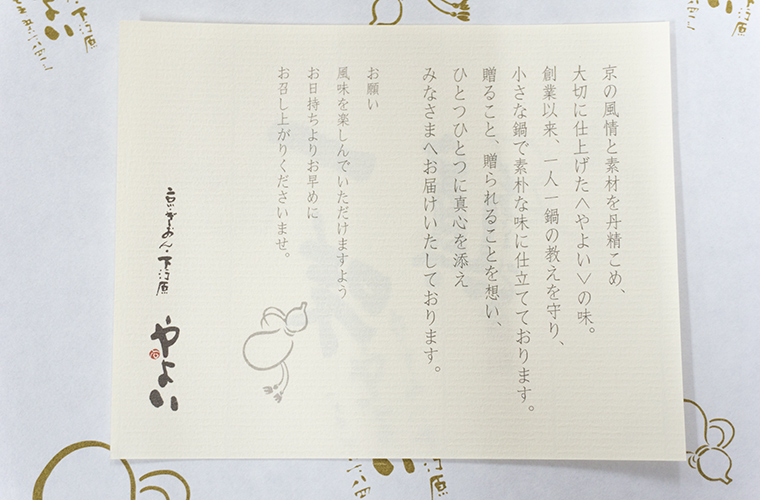 京の風情と素材を丹精こめ、
大切に仕上げた〈やよい〉の味。
創業以来、一人一鍋の教えを守り、
小さな鍋で素朴な味に仕立てております。
贈ること、贈られることを想い、
ひとつひとつに真心を添え
みなさまへお届けいたしております。
お願い
風味を楽しんでいただけますよう
お日持ちよりお早めに
お召し上がりくださいませ。
京・ぎおん・下河原
やよい
下河原
やよい